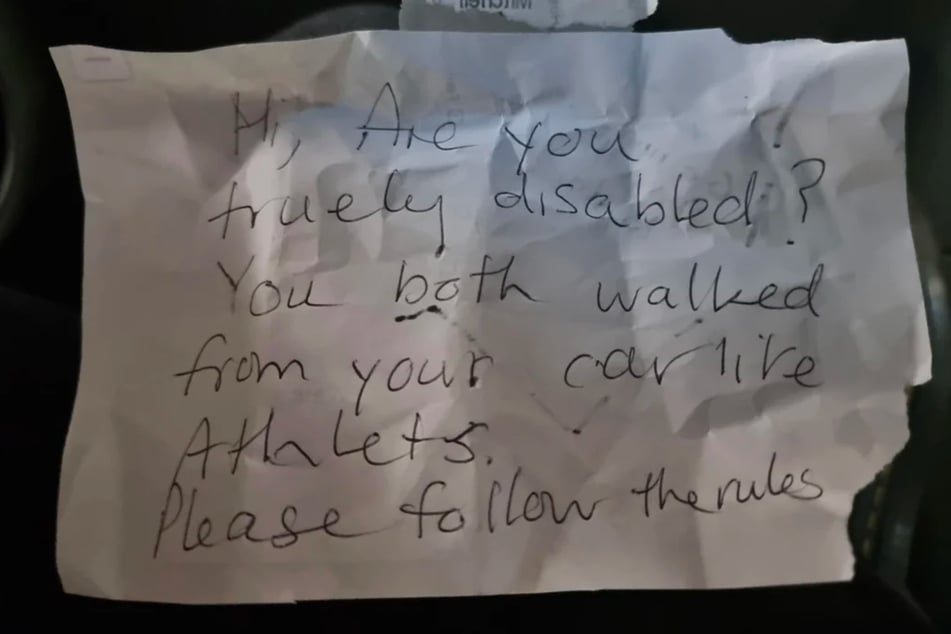 Mitchell
Hi, Are you
truely disabled?
You both walked
from your car like
Athlets.
Please follow the rules